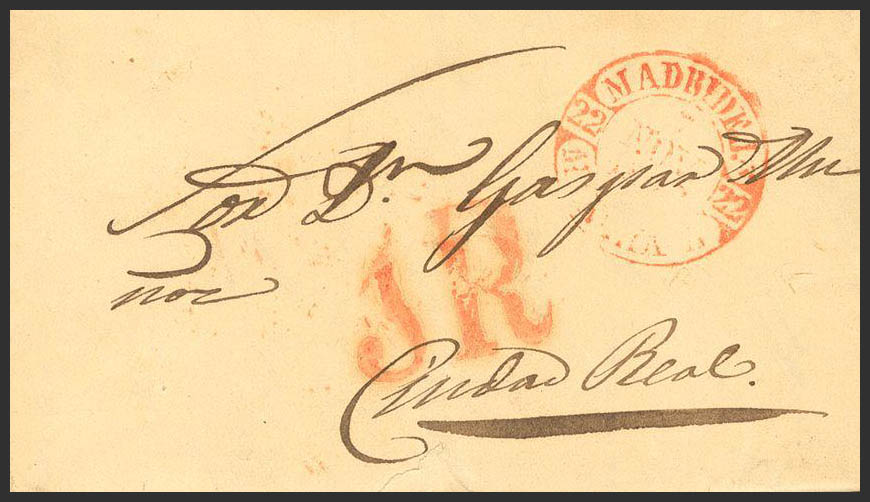 MADRIDEJ.
22
Sor Dn Gaspar Mu
ñoz
1R
Ciudad Real.